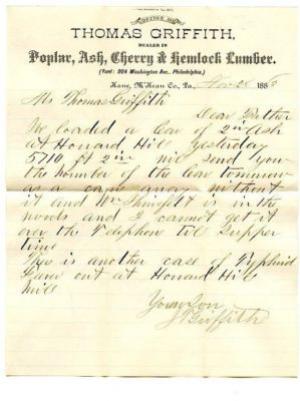 OFFICE OF
THOMAS GRIFFITH,
DEALER IN
Poplar, Ash, Cherry & Hemlock Lumber.
(Yard: 924 Washington Ave., Philadelphia.)
Kane, McKean Co., Pa., Nov 25 188
Mr Thomas Griffith
Dear Father
We loaded a Car of 2 in Ash
at Howard Hill Yesterday
5710 ft 2 in will send you
the number of the Car tomorrow
as a came away without
it and Wm is in the
woods and I cannot get it
over the Telephone till Supper
time
There is another case of Typhoid
Fever out at Howard Hill
Mill
Your Son
J Griffith